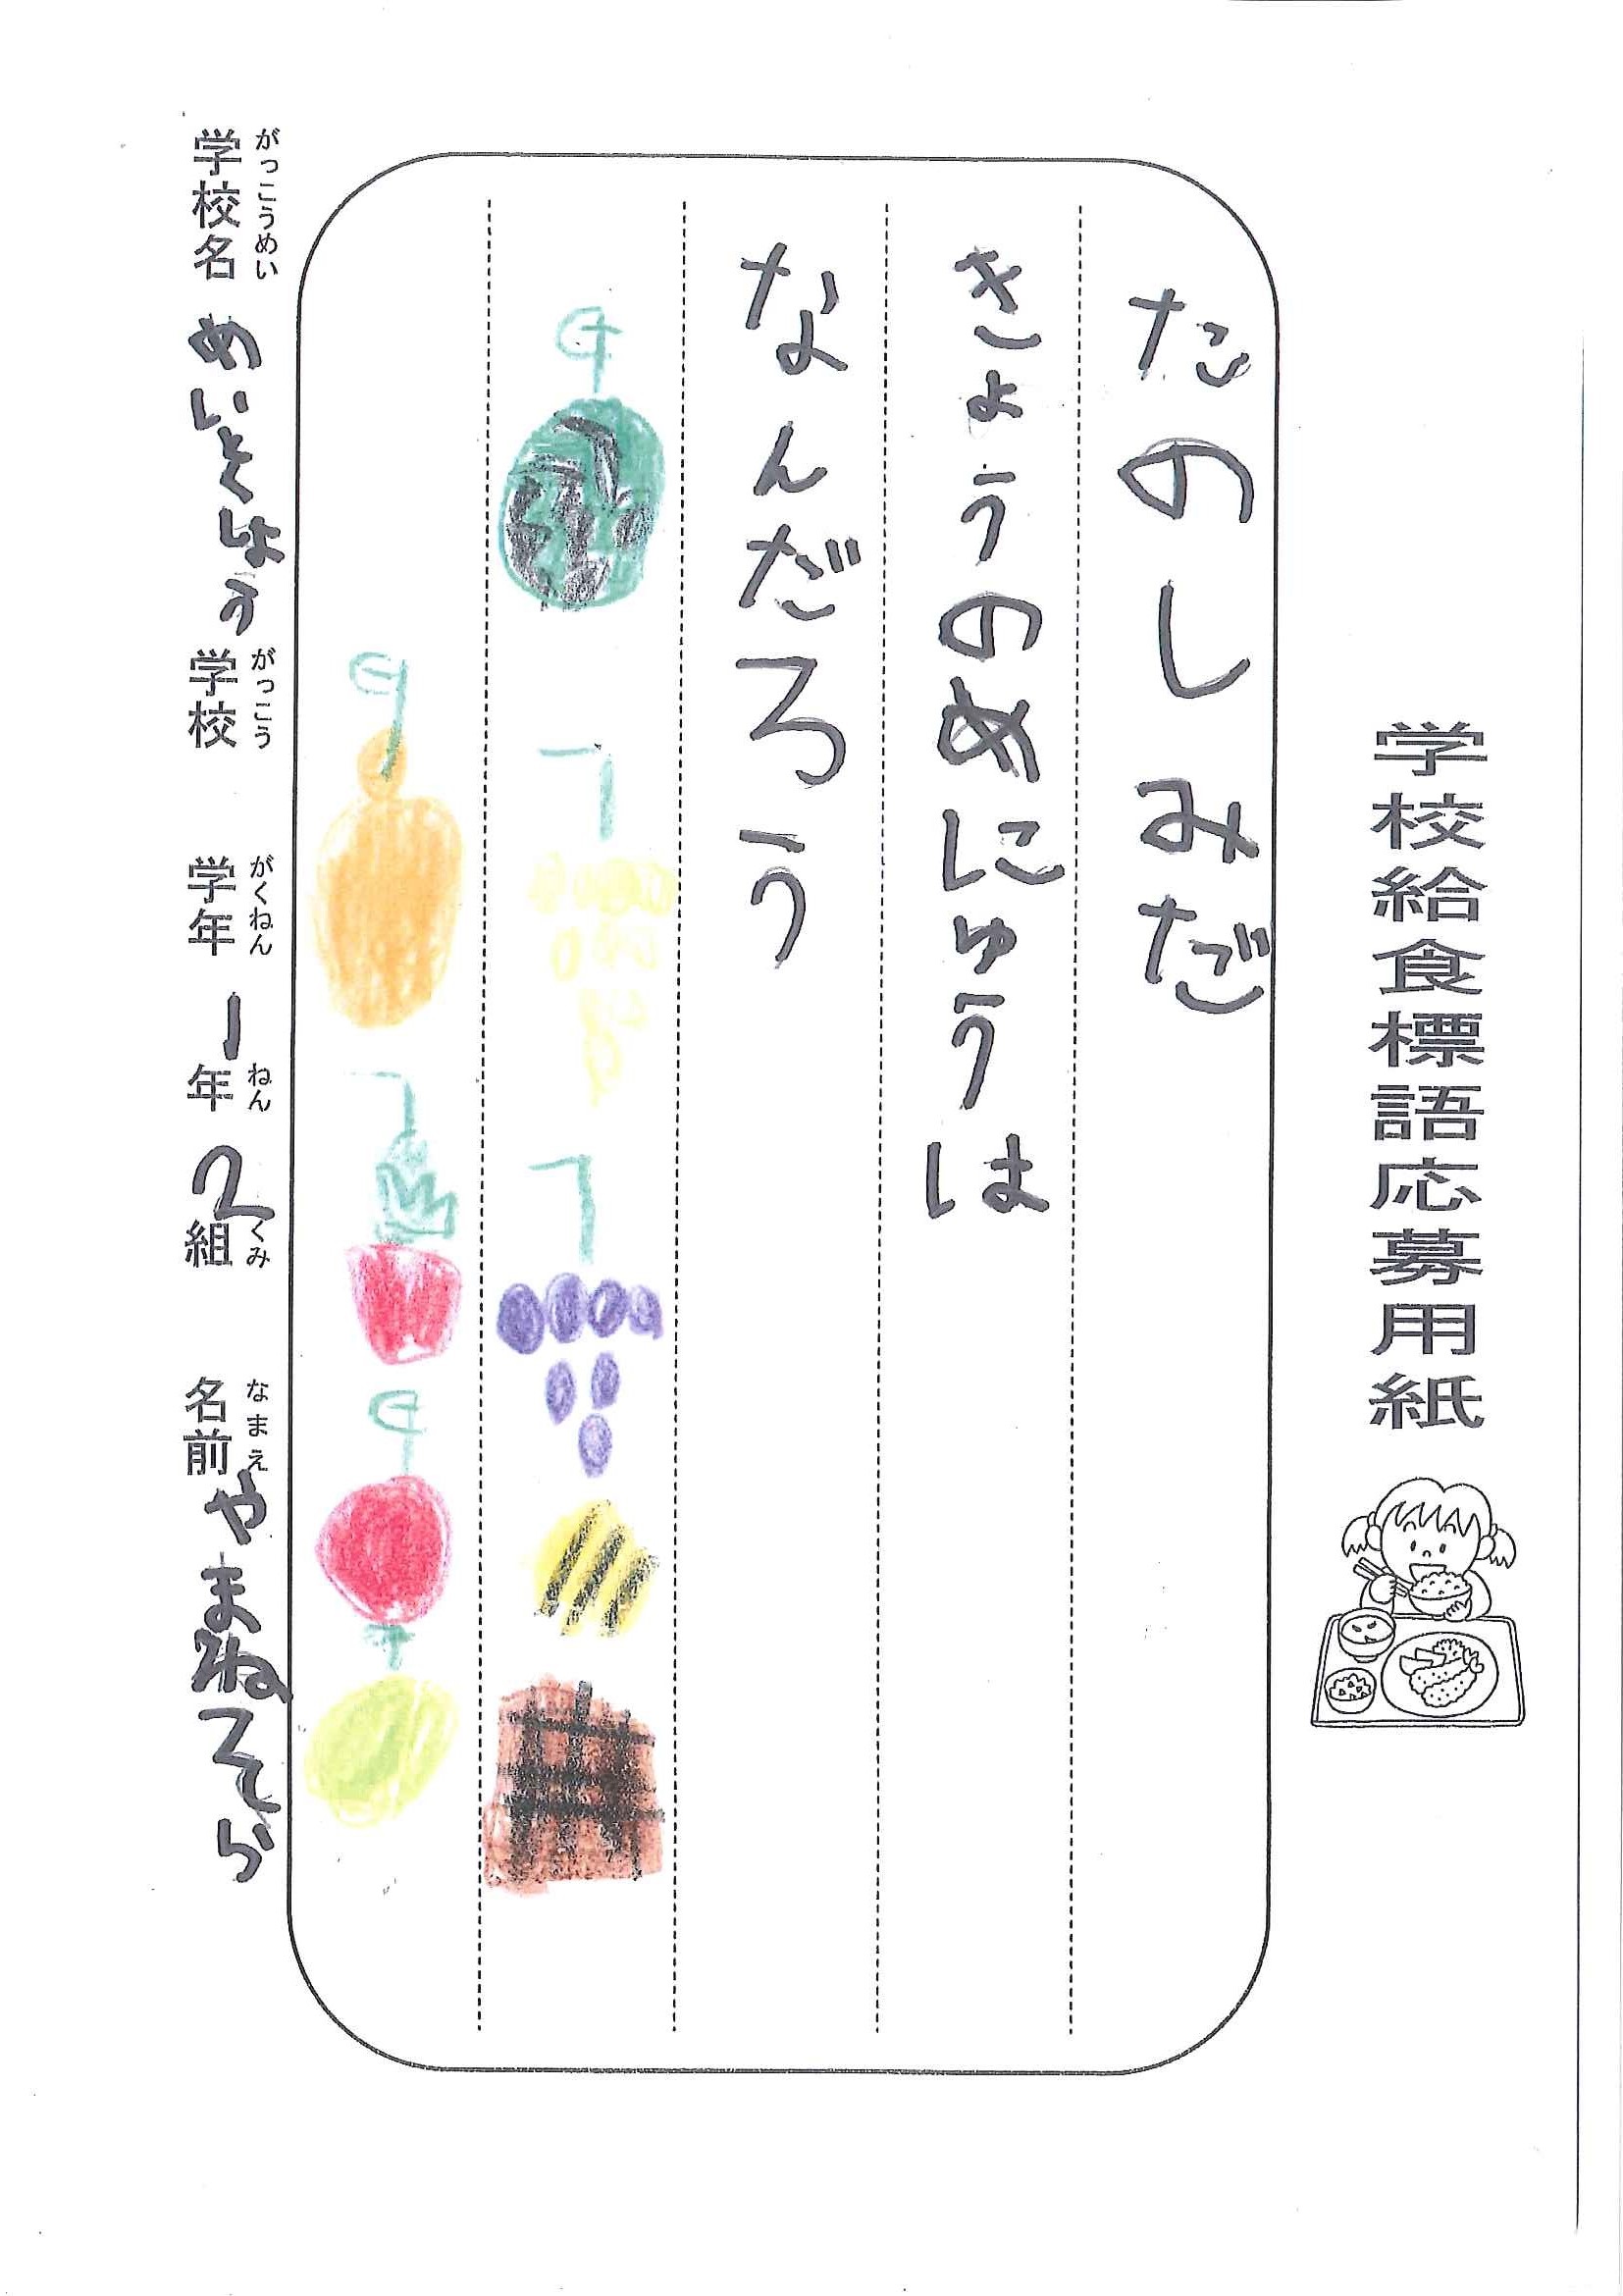 学校給食標語応募用紙
たのしみだ
きょうのめにゅうは
なんだろう
がっこうめい
学校名 めいとくしょう
がっこう
学校
がくねん
学年 1
ねん
年 2
くみ
組
なまえ
名前 やまねそら